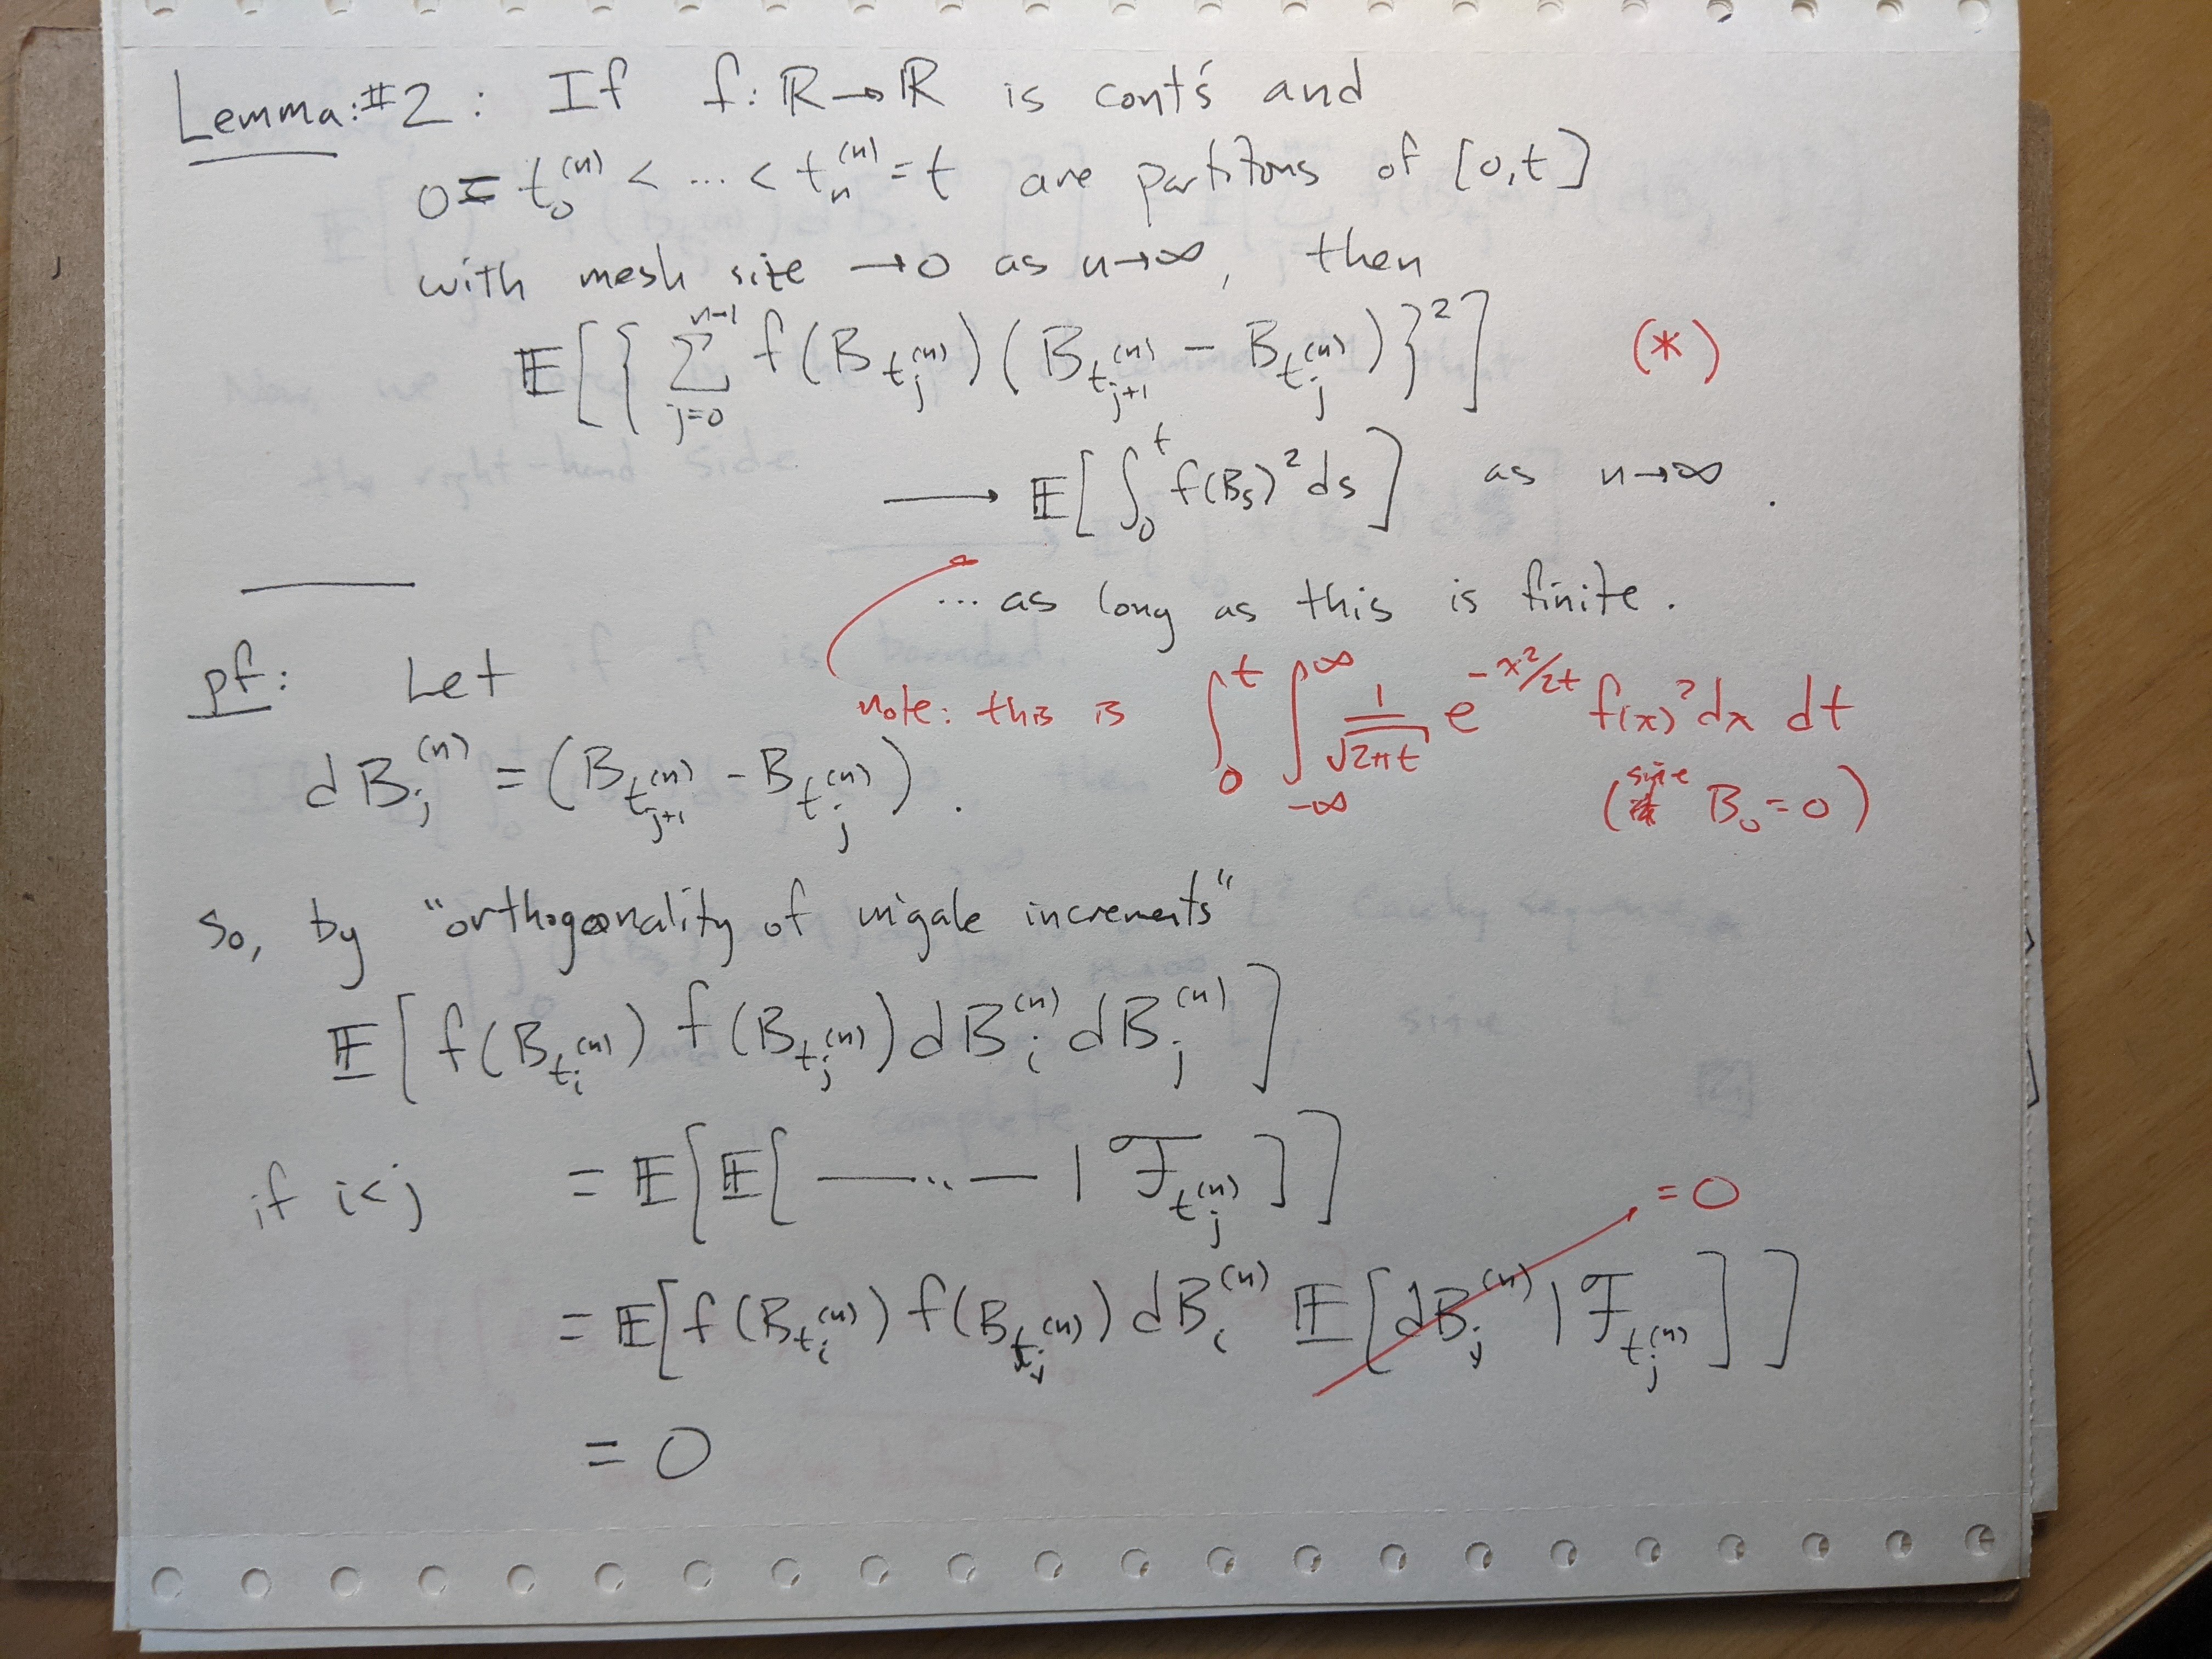 Lemma: #2: If f: ℝ→ℝ is cont's and
0 = t_0^{(n)} < ... < t_n^{(n)} = t are partitons of [0,t]
with mesh size →0 as n→∞, then
𝔼[{ ∑_{j=0}^{n-1} f(B_{t_j^{(n)}}) (B_{t_{j+1}^{(n)}} - B_{t_j^{(n)}}) }^2] (*)
⟶ 𝔼[∫_0^t f(B_s)^2 ds] as n→∞.
... as long as this is finite.
note: this is ∫_0^t ∫_{-∞}^∞ \frac{1}{√{2πt}} e^{-x^2/2t} f(x)^2 dx dt
(since B_0 = 0)
pf: Let
dB_j^{(n)} = (B_{t_{j+1}^{(n)}} - B_{t_j^{(n)}}).
So, by "orthogonality of m'gale increments"
𝔼[f(B_{t_i^{(n)}}) f(B_{t_j^{(n)}}) dB_i^{(n)} dB_j^{(n)}]
if i<j = 𝔼[𝔼[ —...— | ℱ_{t_j^{(n)}}]]
= 𝔼[f(B_{t_i^{(n)}}) f(B_{t_j^{(n)}}) dB_i^{(n)} 𝔼[dB_j^{(n)} | ℱ_{t_j^{(n)}}]] = 0
= 0